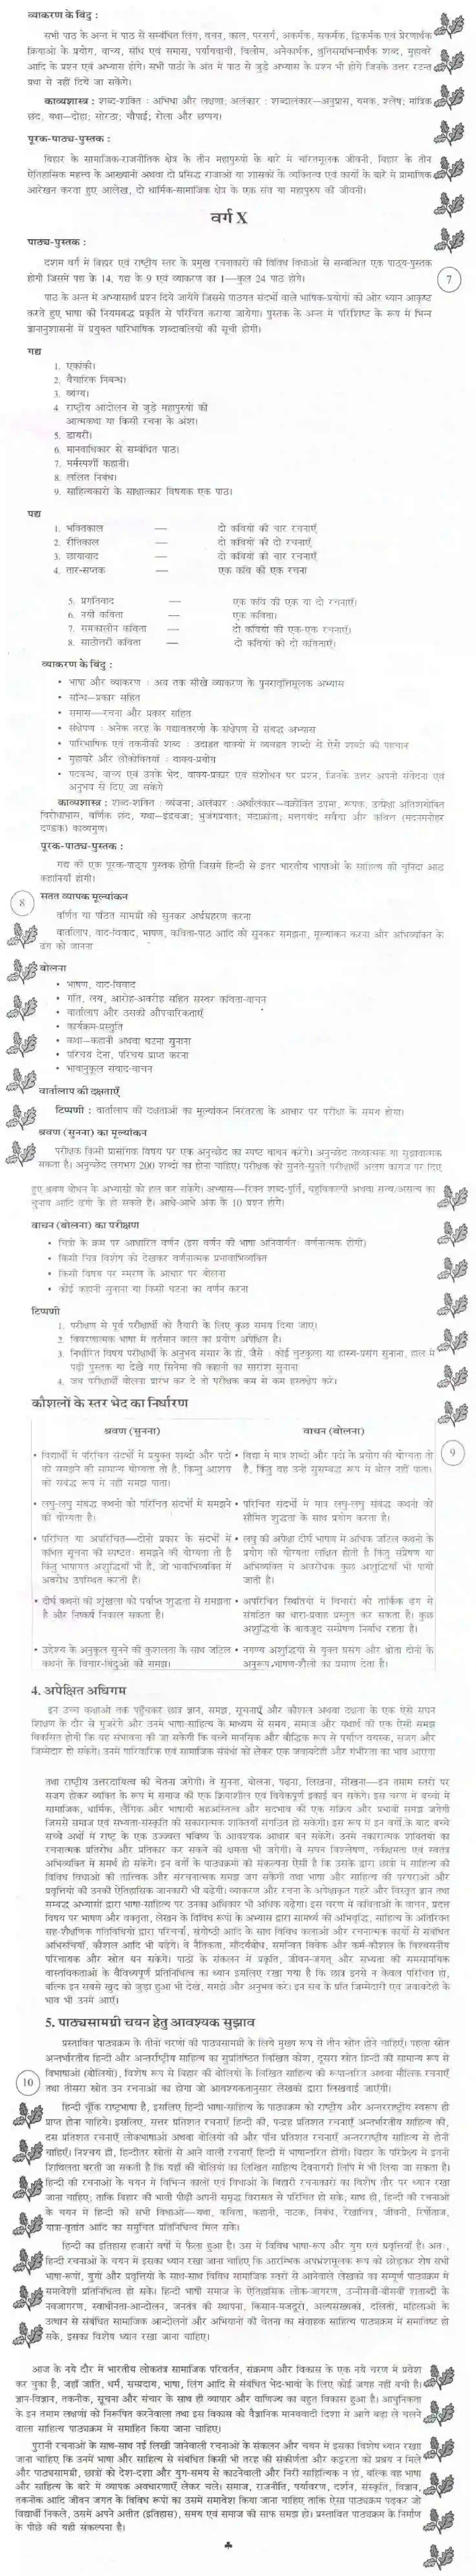 व्याकरण के बिंदु :
सभी पाठ के अन्त में पाठ से सम्बंधित लिंग, वचन, काल, परसर्ग, अकर्मक, सकर्मक, द्विकर्मक एवं प्रेरणार्थक
क्रियाओं के प्रयोग, वाच्य, संधि एवं समास, पर्यायवाची, विलोम, अनेकार्थक, श्रुतिसमभिन्नार्थक शब्द, मुहावरे
आदि के प्रश्न एवं अभ्यास होंगे। सभी पाठों के अंत में पाठ से जुड़े अभ्यास के प्रश्न भी होंगे जिनके उत्तर रटन्त
प्रथा से नहीं दिये जा सकेंगे।
काव्यशास्त्र : शब्द-शक्ति : अभिधा और लक्षणा; अलंकार : शब्दालंकार—अनुप्रास, यमक, श्लेष; मात्रिक
छंद, यथा—दोहा; सोरठा; चौपाई; रोला और छप्पय।
पूरक-पाठ्य-पुस्तक :
बिहार के सामाजिक-राजनीतिक क्षेत्र के तीन महापुरुषों के बारे में चरितमूलक जीवनी, बिहार के तीन
ऐतिहासिक महत्त्व के आख्यानों अथवा दो प्रसिद्ध राजाओं या शासकों के व्यक्तित्व एवं कार्यों के बारे में प्रामाणिक
आरेखन करता हुए आलेख, दो धार्मिक-सामाजिक क्षेत्र के एक संत या महापुरुष की जीवनी।
वर्ग X
पाठ्य-पुस्तक :
7
दशम वर्ग में बिहार एवं राष्ट्रीय स्तर के प्रमुख रचनाकारों की विविध विधाओं से सम्बन्धित एक पाठ्य-पुस्तक
होगी जिसमें पद्य के 14, गद्य के 9 एवं व्याकरण का 1—कुल 24 पाठ होंगे।
पाठ के अन्त में अभ्यासार्थ प्रश्न दिये जायेंगे जिससे पाठगत संदर्भों वाले भाषिक-प्रयोगों की ओर ध्यान आकृष्ट
करते हुए भाषा की नियमबद्ध प्रकृति से परिचित कराया जायेगा। पुस्तक के अन्त में परिशिष्ट के रूप में भिन्न
ज्ञानानुशासनों में प्रयुक्त पारिभाषिक शब्दावलियों की सूची होगी।
गद्य
1. एकांकी।
2. वैचारिक निबन्ध।
3. व्यंग्य।
4. राष्ट्रीय आंदोलन से जुड़े महापुरुषों की
आत्मकथा या किसी रचना के अंश।
5. डायरी।
6. मानवाधिकार से सम्बंधित पाठ।
7. मर्मस्पर्शी कहानी।
8. ललित निबंध।
9. साहित्यकारों के साक्षात्कार विषयक एक पाठ।
पद्य
1. भक्तिकाल — दो कवियों की चार रचनाएँ
2. रीतिकाल — दो कवियों की दो रचनाएँ
3. छायावाद — दो कवियों की चार रचनाएँ
4. तार-सप्तक — एक कवि की एक रचना
5. प्रगतिवाद — एक कवि की एक या दो रचनाएँ।
6. नयी कविता — एक कविता।
7. समकालीन कविता — दो कवियों की एक-एक रचनाएँ।
8. साठोत्तरी कविता — दो कवियों की दो कविताएँ।
व्याकरण के बिंदु :
• भाषा और व्याकरण : अब तक सीखे व्याकरण के पुनरावृत्तिमूलक अभ्यास
• सन्धि—प्रकार सहित
• समास—रचना और प्रकार सहित
• संक्षेपण : अनेक तरह के गद्यावतरणों के संक्षेपण से संबद्ध अभ्यास
• पारिभाषिक एवं तकनीकी शब्द : उदाहृत वाक्यों में व्यवहृत शब्दों से ऐसे शब्दों की पहचान
• मुहावरे और लोकोक्तियाँ : वाक्य-प्रयोग
• पदबन्ध, वाक्य एवं उनके भेद, वाक्य-प्रकार एवं संशोधन पर प्रश्न, जिनके उत्तर अपनी संवेदना एवं
अनुभव से दिए जा सकेंगे
काव्यशास्त्र : शब्द-शक्ति : व्यंजना; अलंकार : अर्थालंकार—वक्रोक्ति उपमा, रूपक, उत्प्रेक्षा अतिशयोक्ति
विरोधाभास, वर्णिक छंद, यथा—इंद्रवज्रा; भुजंगप्रयात; मंदाक्रांता; मत्तगयंद सवैया और कवित्त (मदनमनोहर
दण्डक) काव्यगुण।
पूरक-पाठ्य-पुस्तक :
गद्य की एक पूरक-पाठ्य पुस्तक होगी जिसमें हिन्दी से इतर भारतीय भाषाओं के साहित्य की चुनिंदा आठ
कहानियाँ होंगी।
8
सतत व्यापक मूल्यांकन
वर्णित या पठित सामग्री को सुनकर अर्थग्रहण करना
वार्तालाप, वाद-विवाद, भाषण, कविता-पाठ आदि को सुनकर समझना, मूल्यांकन करना और अभिव्यक्ति के
ढंग को जानना
बोलना
• भाषण, वाद-विवाद
• गति, लय, आरोह-अवरोह सहित सस्वर कविता-वाचन
• वार्तालाप और उसकी औपचारिकताएँ
• कार्यक्रम-प्रस्तुति
• कथा—कहानी अथवा घटना सुनाना
• परिचय देना, परिचय प्राप्त करना
• भावानुकूल संवाद-वाचन
वार्तालाप की दक्षताएँ
टिप्पणी : वार्तालाप की दक्षताओं का मूल्यांकन निरंतरता के आधार पर परीक्षा के समय होगा।
श्रवण (सुनना) का मूल्यांकन
परीक्षक किसी प्रासंगिक विषय पर एक अनुच्छेद का स्पष्ट वाचन करेगा। अनुच्छेद तथ्यात्मक या सुझावात्मक
सकता है। अनुच्छेद लगभग 200 शब्दों का होना चाहिए। परीक्षक को सुनते-सुनते परीक्षार्थी अलग कागज पर दिए
हुए श्रवण बोधन के अभ्यासों को हल कर सकेंगे। अभ्यास—रिक्त शब्द-पूर्ति, बहुविकल्पी अथवा सत्य/असत्य का
चुनाव आदि ढंगों के हो सकते हैं। आधे-आधे अंक के 10 प्रश्न होंगे।
वाचन (बोलना) का परीक्षण
• चित्रों के क्रम पर आधारित वर्णन (इस वर्णन की भाषा अनिवार्यतः वर्णनात्मक होगी)
• किसी चित्र विशेष को देखकर वर्णनात्मक प्रभावाभिव्यक्ति
• किसी विषय पर स्मरण के आधार पर बोलना
• कोई कहानी सुनाना या किसी घटना का वर्णन करना
टिप्पणी
1. परीक्षण से पूर्व परीक्षार्थी को तैयारी के लिए कुछ समय दिया जाए।
2. विवरणात्मक भाषा में वर्तमान काल का प्रयोग अपेक्षित है।
3. निर्धारित विषय परीक्षार्थी के अनुभव संसार के हों, जैसे : कोई चुटकुला या हास्य-प्रसंग सुनाना, हाल में
पढ़ी पुस्तक या देखे गए सिनेमा की कहानी का सारांश सुनाना
4. जब परीक्षार्थी बोलना प्रारंभ कर दे तो परीक्षक कम से कम हस्तक्षेप करे।
कौशलों के स्तर भेद का निर्धारण
9
श्रवण (सुनना)
वाचन (बोलना)
• विद्यार्थी में परिचित संदर्भों में प्रयुक्त शब्दों और पदों
को समझने की सामान्य योग्यता तो है, किन्तु आशय
को संबद्ध रूप में नहीं समझ पाता।
• विद्या में मात्र शब्दों और पदों के प्रयोग की योग्यता तो
है, किंतु वह उन्हें सुसम्बद्ध रूप में बोल नहीं पाता।
• लघु-लघु संबद्ध कथनों को परिचित संदर्भों में समझने
की योग्यता है।
• परिचित संदर्भों में मात्र लघु-लघु संबंद्ध कथनों को
सीमित शुद्धता के साथ प्रयोग करता है।
• परिचित या अपरिचित—दोनों प्रकार के संदर्भों में
कथित सूचना को स्पष्टतः समझने की योग्यता तो है
किंतु भाषागत अशुद्धियाँ भी हैं, जो भावाभिव्यक्ति में
अवरोध उपस्थित करती हैं।
• लघु की अपेक्षा दीर्घ भाषण में अधिक जटिल कथनों के
प्रयोग की योग्यता लक्षित होती है किंतु संप्रेषण या
अभिव्यक्ति में अवरोधक कुछ अशुद्धियाँ भी पायी
जाती हैं।
• दीर्घ कथनों की शृंखला को पर्याप्त शुद्धता से समझता
है और निष्कर्ष निकाल सकता है।
• अपरिचित स्थितियों में विचारों को तार्किक ढंग से
संगठित का धारा-प्रवाह प्रस्तुत कर सकता है। कुछ
अशुद्धियों के बावजूद सम्प्रेषण निर्बाध रहता है।
• उद्देश्य के अनुकूल सुनने की कुशलता के साथ जटिल
कथनों के विचार-बिंदुओं को समझ।
• नगण्य अशुद्धियों से युक्त प्रसंग और श्रोता दोनों के
अनुरूप भाषण-शैली का प्रमाण देता है।
4. अपेक्षित अधिगम
इन उच्च कक्षाओं तक पहुँचकर छात्र ज्ञान, समझ, सूचनाएँ और कौशल अथवा दक्षता के एक ऐसे सघन
शिक्षण के दौर से गुजरेंगे और उनमें भाषा-साहित्य के माध्यम से समय, समाज और यथार्थ की एक ऐसी समझ
विकसित होगी कि यह संभावना की जा सकेगी कि बच्चे मानसिक और बौद्धिक रूप से पर्याप्त वयस्क, सजग और
जिम्मेदार हो सकेंगे। उनमें पारिवारिक एवं सामाजिक संबंधों को लेकर एक जवाबदेही और गंभीरता का भाव आएगा
तथा राष्ट्रीय उत्तरदायित्व की चेतना जगेगी। वे सुनना, बोलना, पढ़ना, लिखना, सीखना—इन तमाम स्तरों पर
सजग होकर व्यक्ति के रूप में समाज की एक क्रियाशील एवं विवेकपूर्ण इकाई बन सकेंगे। इस चरण में बच्चों में
सामाजिक, धार्मिक, लैंगिक और भाषायी सहअस्तित्व और सदभाव की एक सक्रिय और प्रभावी समझ जगेगी
जिससे समाज एवं सभ्यता-संस्कृति की सकारात्मक शक्तियाँ संगठित हो सकेंगी। इस रूप में इन वर्गों के बाद बच्चे
सच्चे अर्थों में राष्ट्र के एक उज्ज्वल भविष्य के आवश्यक आधार बन सकेंगे। उनमें नकारात्मक शक्तियों का
रचनात्मक प्रतिरोध और प्रतिकार कर सकने की क्षमता भी जगेगी। वे सघन विश्लेषण, तर्कक्षमता एवं स्वतंत्र
अभिव्यक्ति में समर्थ हो सकेंगे। इन वर्गों के पाठ्यक्रमों की संकल्पना ऐसी है कि उसके द्वारा छात्रों में साहित्य की
विविध विधाओं की तात्त्विक और संरचनात्मक समझ जग सकेगी तथा भाषा और साहित्य की परंपराओं और
प्रवृत्तियों की उनकी ऐतिहासिक जानकारी भी बढ़ेगी। व्याकरण और रचना के अपेक्षाकृत गहरे और विस्तृत ज्ञान तथा
सम्बद्ध अभ्यासों द्वारा भाषा-साहित्य पर उनका अधिकार भी अधिक बढ़ेगा। इस चरण में कविताओं के वाचन, प्रदत्त
विषय पर भाषण और वक्तृता, लेखन के विविध रूपों के अभ्यास द्वारा सामर्थ्य की अभिवृद्धि, साहित्य के अतिरिक्त
सह-शैक्षणिक गतिविधियों द्वारा परिचर्चा, संगोष्ठी आदि के साथ विविध कलाओं और रचनात्मक कार्यों से संबंधित
अभिरुचियाँ, कौशल आदि भी बढ़ेंगे। वे नैतिकता, सौंदर्यबोध, समन्वित विवेक और कर्म-कौशल के विश्वसनीय
परिचायक और स्रोत बन सकेंगे। पाठों के संकलन में प्रकृति, जीवन-जगत् और सभ्यता की समसामयिक
वास्तविकताओं के वैविध्यपूर्ण प्रतिनिधित्व का ध्यान इसलिए रखा गया है कि छात्र इनसे न केवल परिचित हों,
बल्कि इन सबसे खुद को जुड़ा हुआ भी देखें, समझें और अनुभव करें। इन सब के प्रति जिम्मेदारी एवं जवाबदेही के
भाव भी उनमें आएँ।
5. पाठ्यसामग्री चयन हेतु आवश्यक सुझाव
प्रस्तावित पाठ्यक्रम के तीनों चरणों की पाठ्यसामग्री के लिये मुख्य रूप से तीन स्रोत होने चाहिएँ। पहला स्रोत
अन्तर्भारतीय हिन्दी और अन्तर्राष्ट्रीय साहित्य का सुप्रतिष्ठित लिखित कोश, दूसरा स्रोत हिन्दी की सामान्य रूप से
विभाषाओं (बोलियों), विशेष रूप से बिहार की बोलियों के लिखित साहित्य की रूपान्तरित अथवा मौलिक रचनाएँ
तथा तीसरा स्रोत उन रचनाओं का होगा जो आवश्यकतानुसार लेखकों द्वारा लिखवाई जाएँगी।
10
हिन्दी चूँकि राष्ट्रभाषा है, इसलिए हिन्दी भाषा-साहित्य के पाठ्यक्रम को राष्ट्रीय और अन्तरराष्ट्रीय स्वरूप ही
प्राप्त होना चाहिये। इसलिए, सत्तर प्रतिशत रचनाएँ हिन्दी की, पन्द्रह प्रतिशत रचनाएँ अन्तर्भारतीय साहित्य की,
दस प्रतिशत रचनाएँ लोकभाषाओं अथवा बोलियों की और पाँच प्रतिशत रचनाएँ अन्तरराष्ट्रीय साहित्य से होनी
चाहिएँ। निश्चय ही, हिन्दीतर स्रोतों से आने वाली रचनाएँ हिन्दी में भाषान्तरित होंगी। बिहार के परिप्रेक्ष्य में इतनी
शिथिलता बरती जा सकती है कि यहाँ की बोलियों का लिखित साहित्य देवनागरी लिपि में भी लिया जा सकता है।
हिन्दी की रचनाओं के चयन में विभिन्न कालों एवं विधाओं के बिहारी रचनाकारों का विशेष तौर पर ध्यान रखा
जाना चाहिए; ताकि बिहार की भावी पीढ़ी अपनी समृद्ध विरासत से परिचित हो सके; साथ ही, हिन्दी की रचनाओं
के चयन में हिन्दी की सभी विधाओं—यथा, कविता, कहानी, नाटक, निबंध, रेखाचित्र, जीवनी, रिर्पोताज,
यात्रा-वृतांत आदि का समुचित प्रतिनिधित्व मिल सके।
हिन्दी का इतिहास हजारों वर्षों में फैला हुआ है। उस में विविध भाषा-रूप और युग एवं प्रवृत्तियाँ हैं। अतः,
हिन्दी रचनाओं के चयन में इसका ध्यान रखा जाना चाहिए कि आरम्भिक अपभ्रंशमूलक रूप को छोड़कर शेष सभी
भाषा-रूपों, युगों और प्रवृत्तियों के साथ-साथ विविध सामाजिक स्तरों से आनेवाले लेखकों का सम्पूर्ण पाठ्यक्रम में
समावेशी प्रतिनिधित्व हो सके। हिन्दी भाषी समाज के ऐतिहासिक लोक-जागरण, उन्नीसवीं-बीसवीं शताब्दी के
नवजागरण, स्वाधीनता-आन्दोलन, जनतंत्र की स्थापना, किसान-मजदूरों, अल्पसंख्यकों, दलितों, महिलाओं के
उत्थान से संबंधित सामाजिक आन्दोलनों और अभियानों की चेतना का संवाहक साहित्य पाठ्यक्रम में समाविष्ट हो
सके, इसका विशेष ध्यान रखा जाना चाहिए।
आज के नये दौर में भारतीय लोकतंत्र सामाजिक परिवर्तन, संक्रमण और विकास के एक नये चरण में प्रवेश
कर चुका है, जहाँ जाति, धर्म, सम्प्रदाय, भाषा, लिंग आदि से संबंधित भेद-भावों के लिए कोई जगह नहीं बची है।
ज्ञान-विज्ञान, तकनीक, सूचना और संचार के साथ ही व्यापार और वाणिज्य का बहुत विकास हुआ है। आधुनिकता
के इन तमाम लक्षणों को निरूपित करनेवाला तथा इस विकास को वैज्ञानिक मानववादी दिशा में आगे बढ़ा ले चलने
वाला साहित्य पाठ्यक्रम में समाहित किया जाना चाहिए।
पुरानी रचनाओं के साथ-साथ नई लिखी जानेवाली रचनाओं के संकलन और चयन में इसका विशेष ध्यान रखा
जाना चाहिए कि उनमें भाषा और साहित्य से संबंधित किसी भी तरह की संकीर्णता और कट्टरता को प्रश्रय न मिले
और पाठ्यसामग्री, छात्रों को देश-दशा और युग-समय से काटनेवाली और निरी साहित्यिक न हो, बल्कि वह भाषा
और साहित्य के बारे में व्यापक अवधारणाएँ लेकर चले। समाज, राजनीति, पर्यावरण, दर्शन, संस्कृति, विज्ञान,
तकनीक आदि जीवन जगत के विविध रूपों का उसमें समावेश किया जाना चाहिए ताकि ऐसा पाठ्यक्रम पढ़कर जो
विद्यार्थी निकले, उसमें अपने अतीत (इतिहास), समय एवं समाज की साफ समझ हो। प्रस्तावित पाठ्यक्रम के निर्माण
के पीछे की यही संकल्पना है।